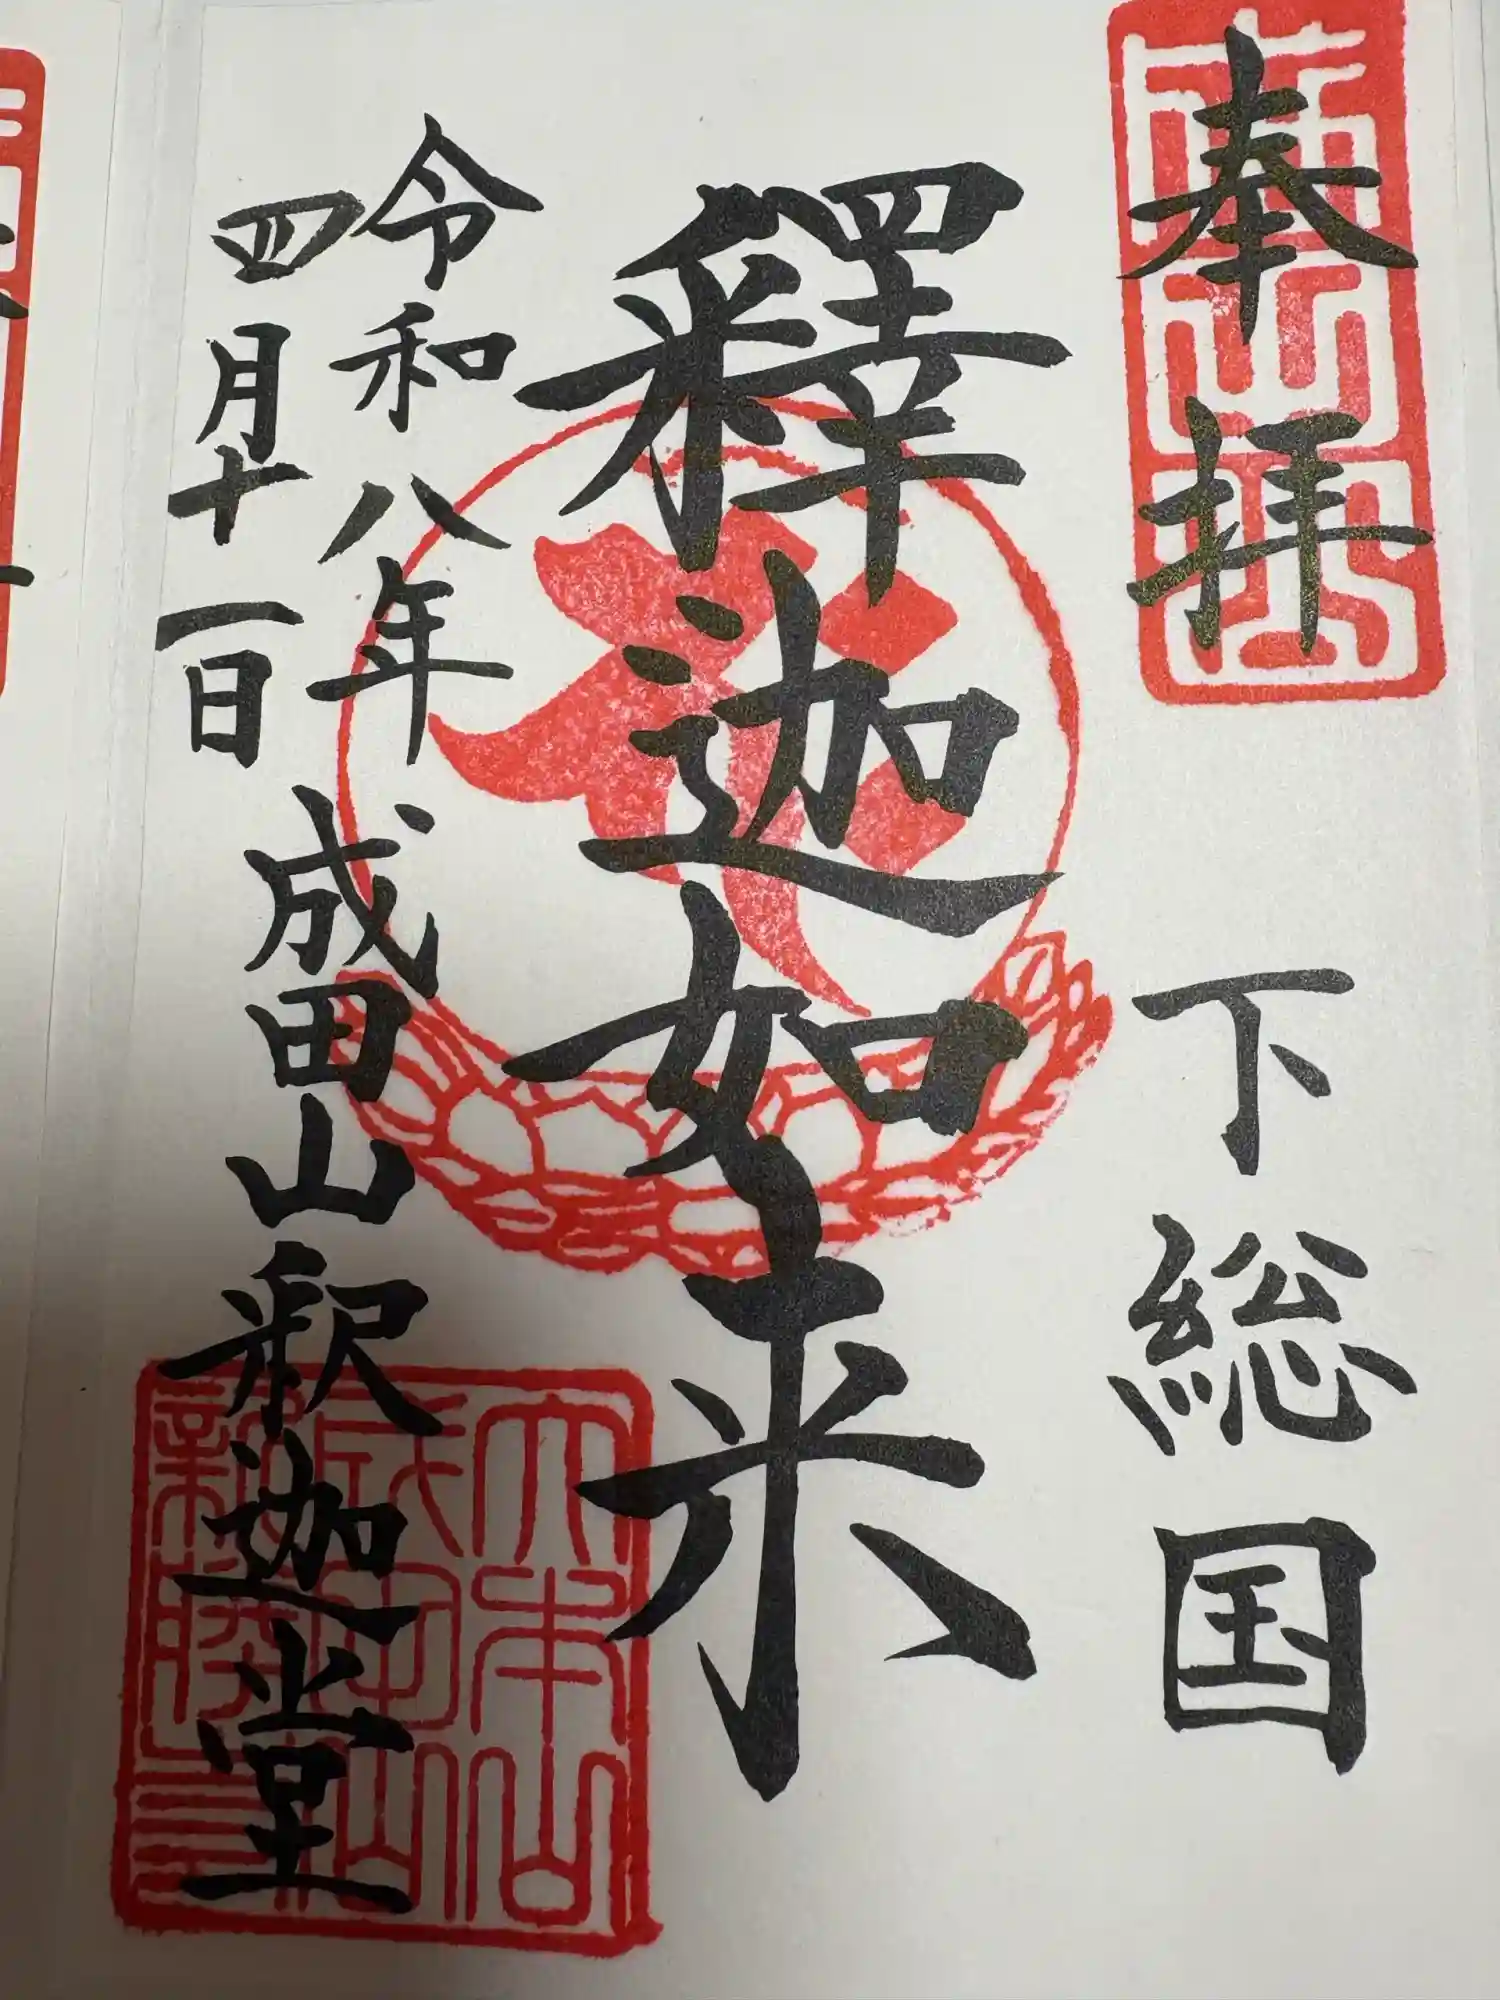 奉拝
下総国
釋迦如来
令和八年
四月十一日
成田山釈迦堂